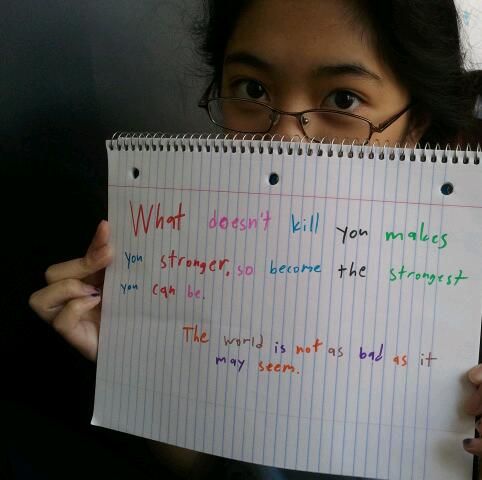 What doesn't kill you makes
you stronger, so become the strongest
you can be.
The world is not as bad as it
may seem.